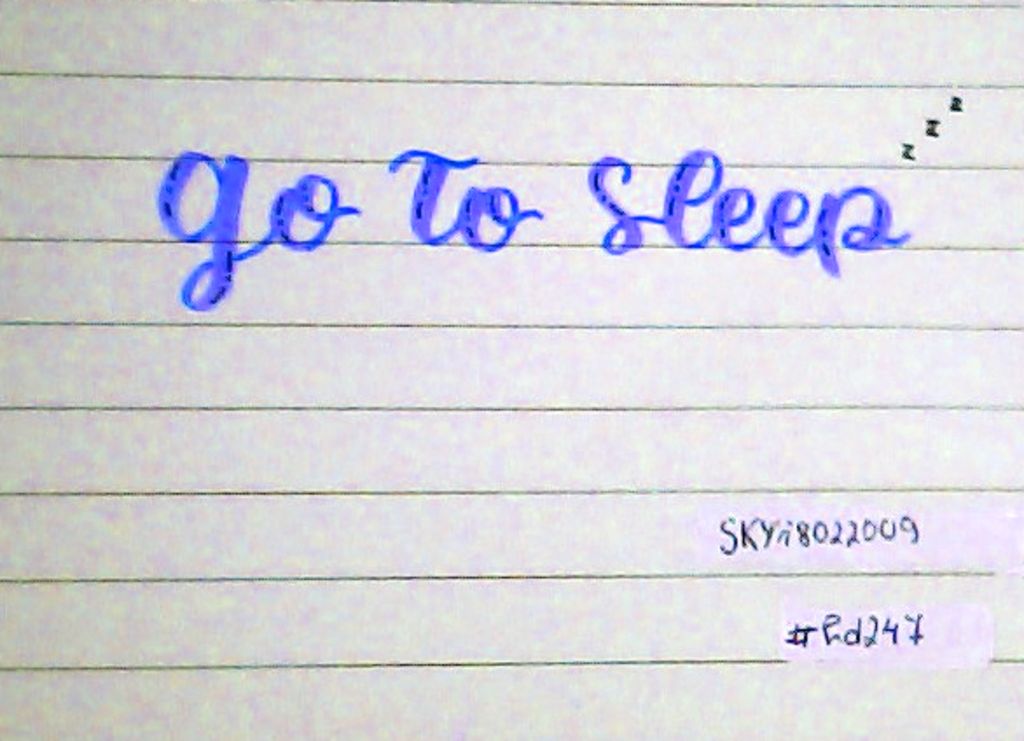 z
z
z
go to sleep
SKYi8022009
#hd247